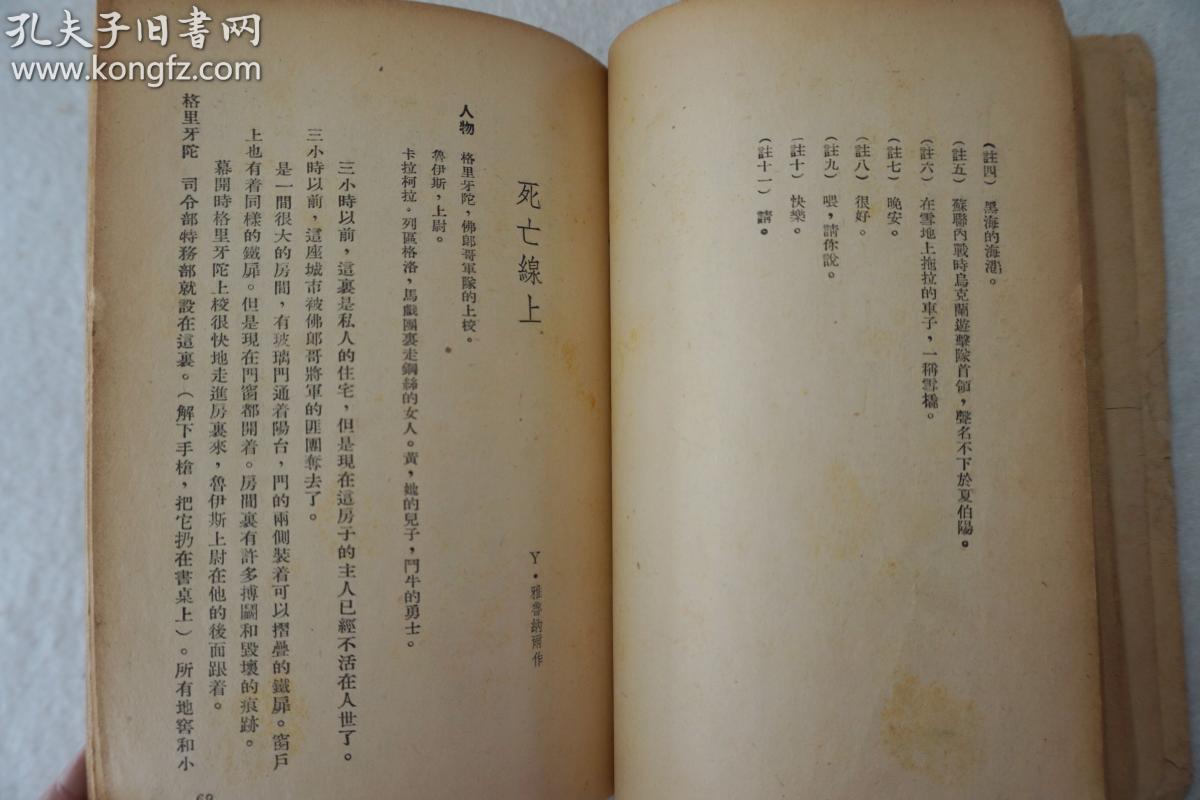 孔夫子旧书网
www.kongfz.com
(註四) 黑海的海港。
(註五) 蘇聯內戰時烏克蘭遊擊隊首領，聲名不下於夏伯陽。
(註六) 在雪地上拖拉的車子，一稱雪橇。
(註七) 晚安。
(註八) 很好。
(註九) 喂，請你說。
(註十) 快樂。
(註十一) 請。
死亡線上
Y·雅魯納爾作
人物 格里牙陀，佛郎哥軍隊的上校。
魯伊斯，上尉。
卡拉柯拉。列區格洛，馬戲團裏走鋼絲的女人。黃，她的兒子，鬥牛的勇士。
三小時以前，這裏是私人的住宅，但是現在這房子的主人已經不活在人世了。
三小時以前，這座城市被佛郎哥將軍的匪團奪去了。
是一間很大的房間，有玻璃門通着陽台，門的兩側裝着可以摺疊的鐵扉。窗戶
上也有着同樣的鐵扉。但是現在門窗都開着。房間裏有許多搏鬭和毀壞的痕跡。
幕開時格里牙陀上校很快地走進房裏來，魯伊斯上尉在他的後面跟着。
格里牙陀 司令部特務部就設在這裏。（解下手槍，把它扔在書桌上）。所有地窖和小